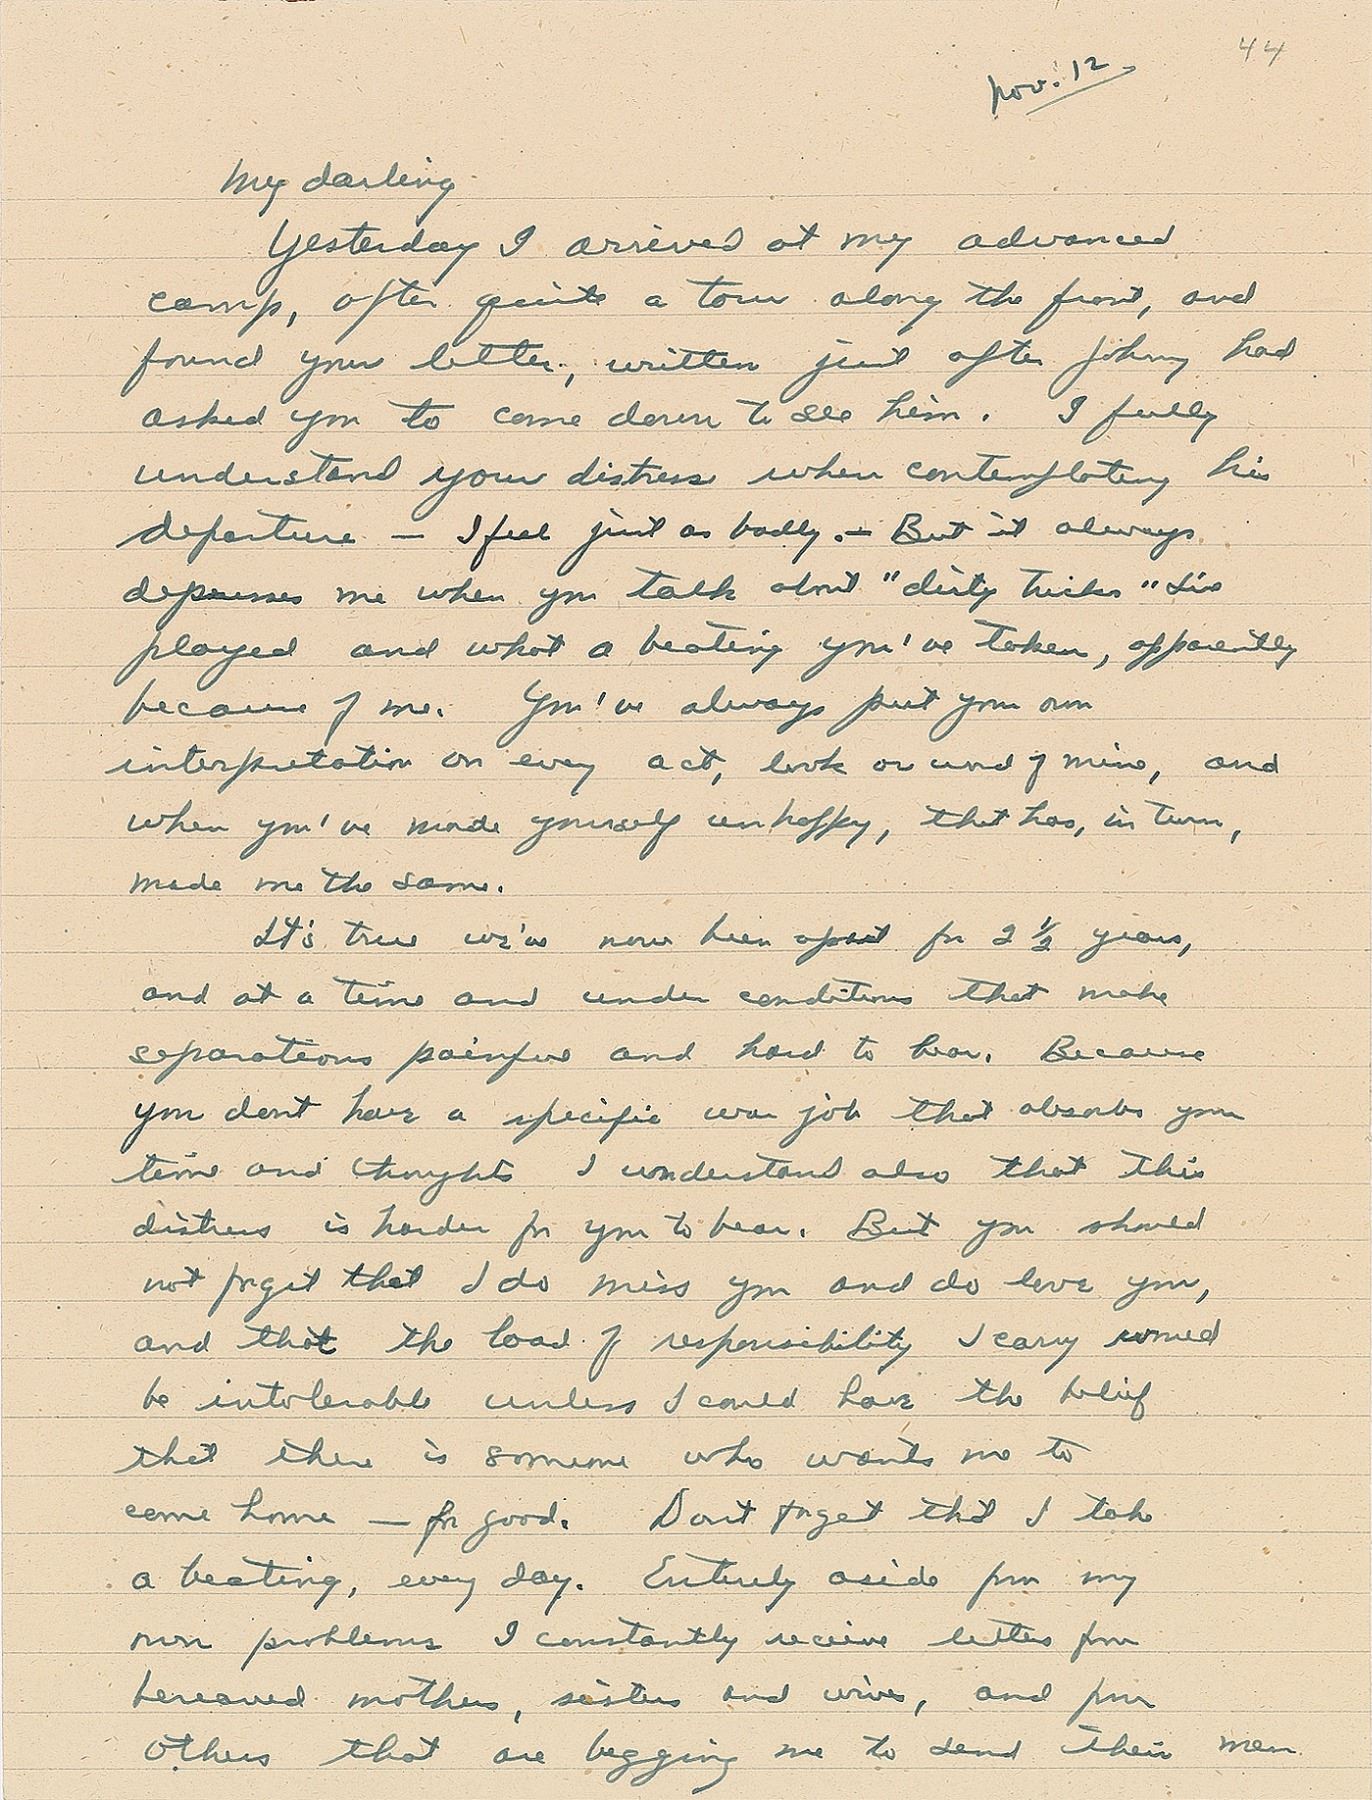 44
Nov. 12
My darling
Yesterday I arrived at my advanced
camp, after quite a tour along the front, and
found your letter, written just after Johnny had
asked you to come down to see him. I fully
understand your distress when contemplating his
departure — I feel just as badly. — But it always
depresses me when you talk about "dirty tricks" I've
played and what a beating you've taken, apparently
because of me. You've always put your own
interpretation on every act, look or word of mine, and
when you've made yourself unhappy, that has, in turn,
made me the same.
It's true we've now been apart for 2 ½ years,
and at a time and under conditions that make
separations painful and hard to bear. Because
you don't have a specific war job that absorbs your
time and thoughts I understand also that this
distress is harder for you to bear. But you should
not forget that I do miss you and do love you,
and that the load of responsibility I carry would
be intolerable unless I could have the belief
that there is someone who wants me to
come home — for good. Dont forget that I take
a beating, every day. Entirely aside from my
own problems I constantly receive letters from
bereaved mothers, sisters and wives, and from
others that are begging me to send their men